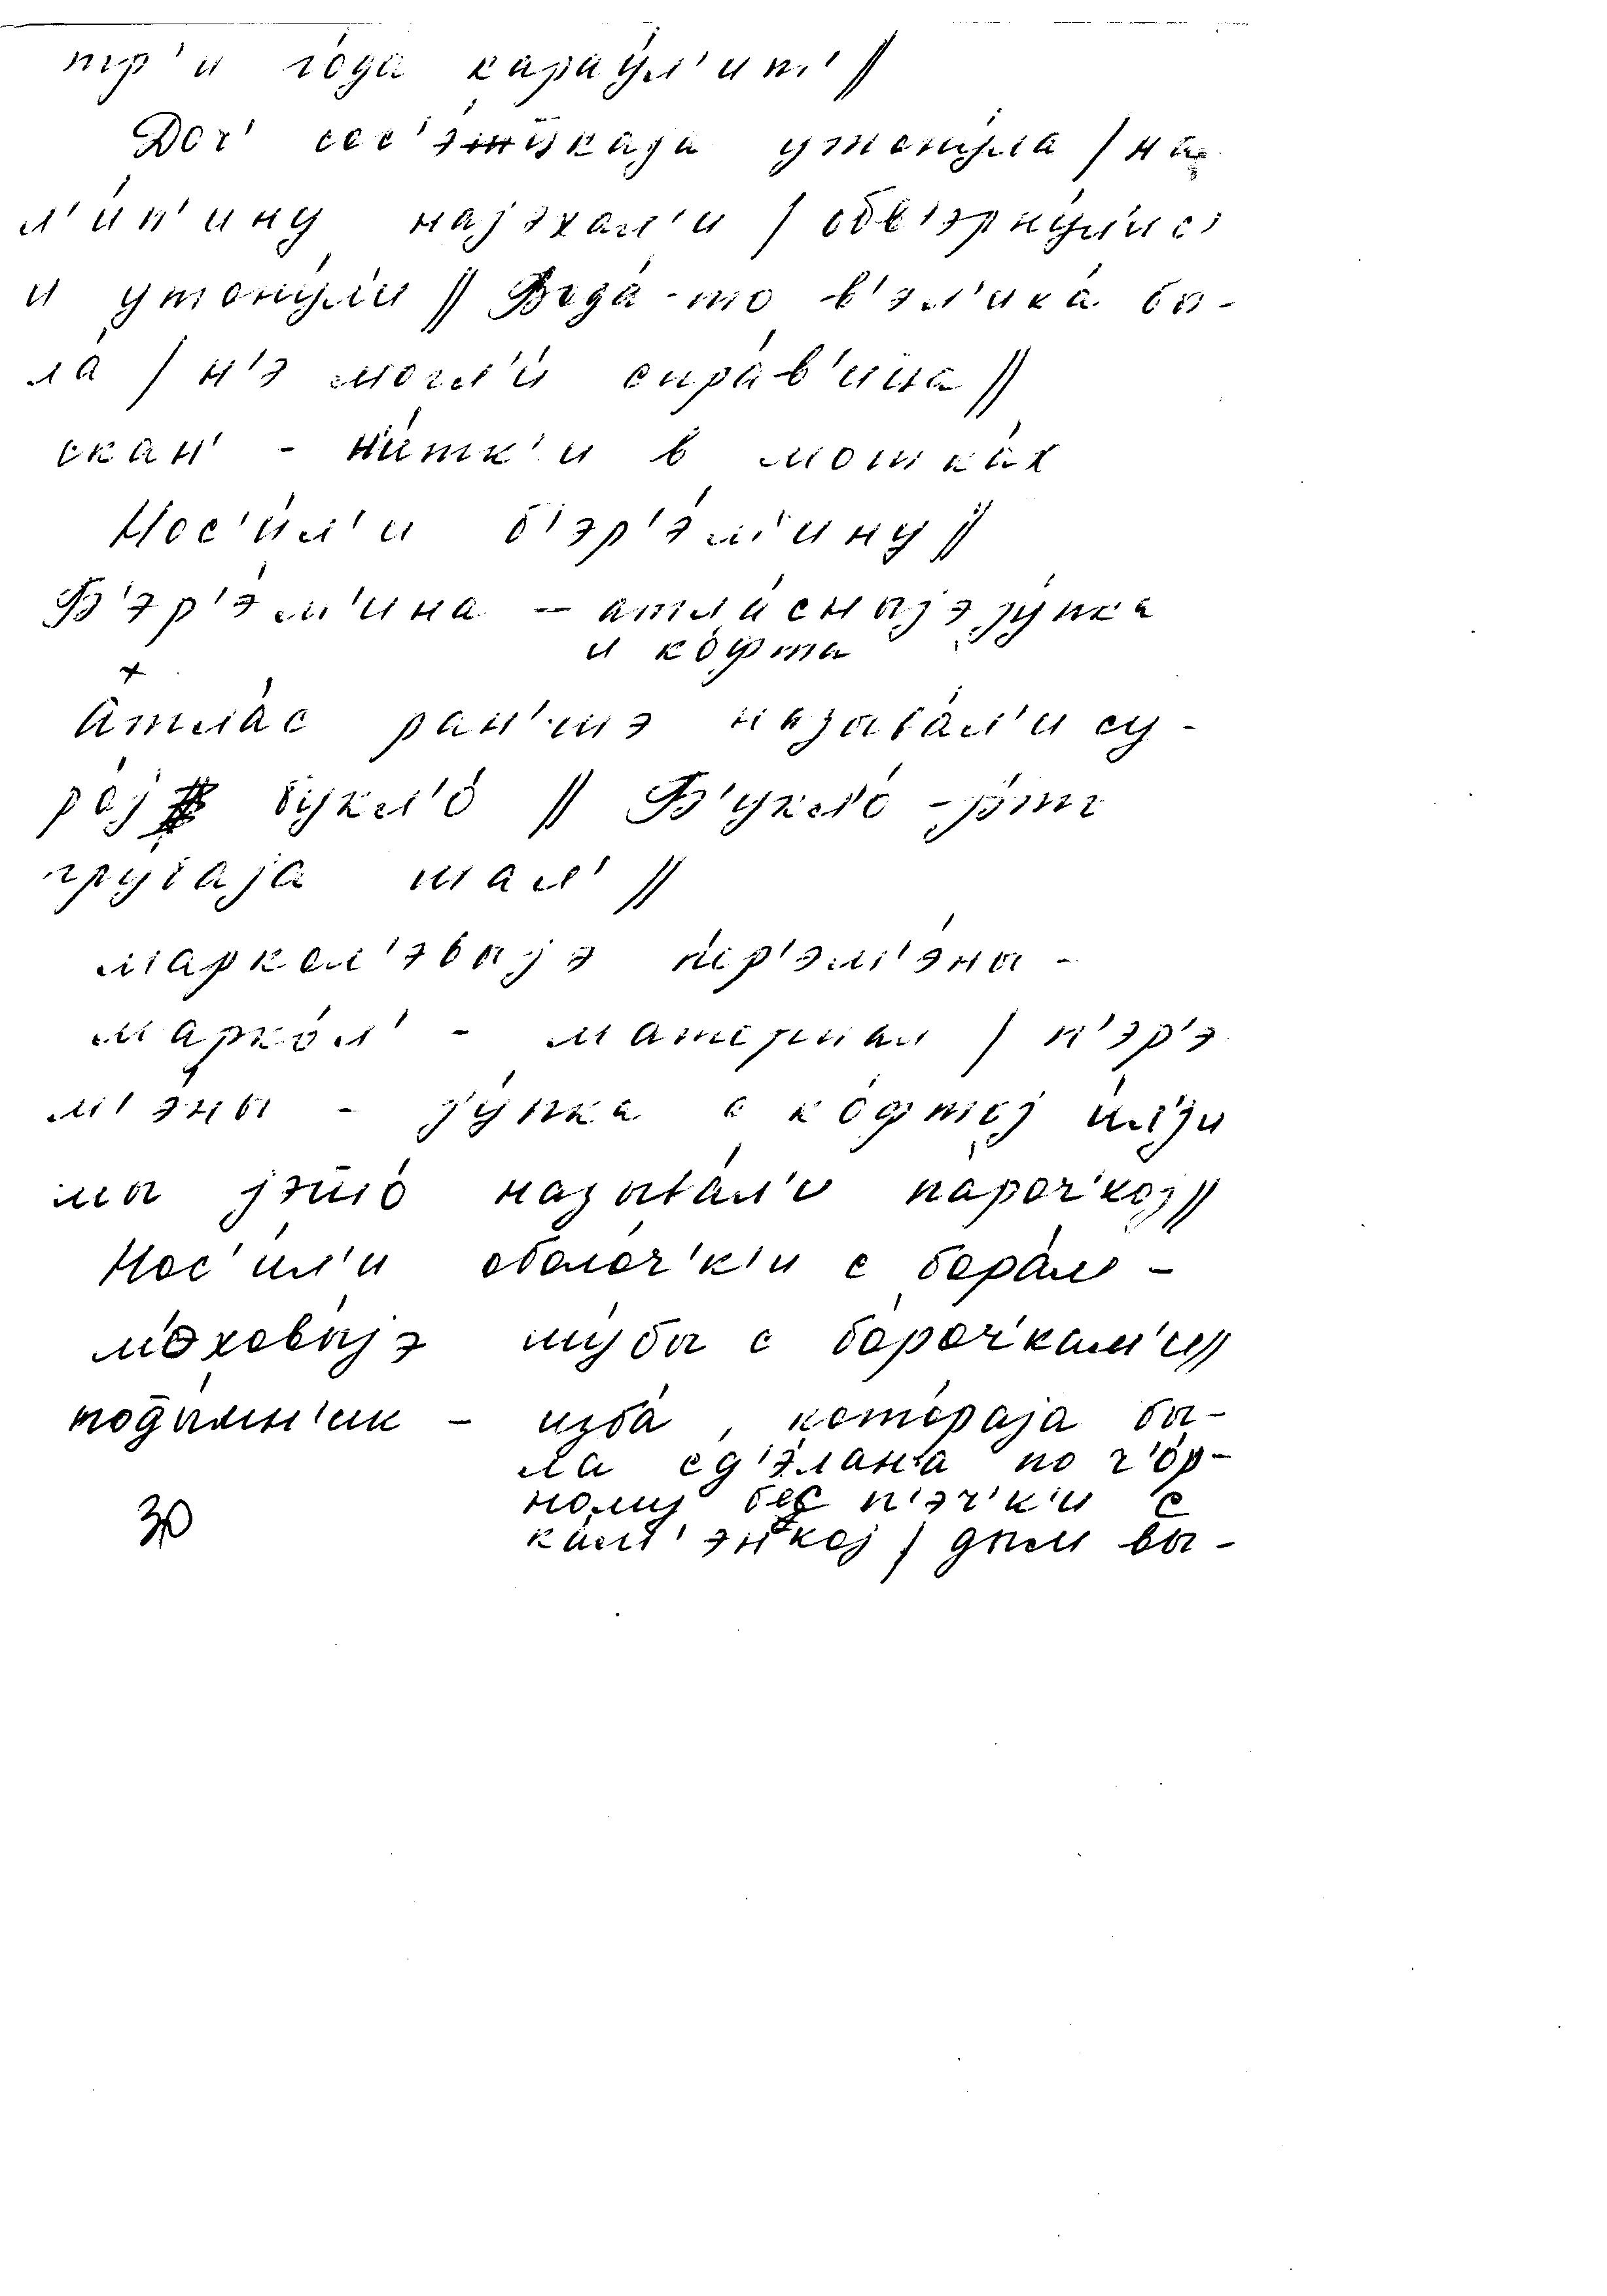 тр'и го́да карау́л'ит'//
Доч' сос'э́цкаја утону́ла / на
л'ы́п'ину најэхал'и / обв'эрну́л'ис'
и утону́л'и // Вода́-то в'эл'ика́ бы-
ла́ / н'э могл'и́ спра́в'ицца //
скан' - н'и́тк'и в мотка́х
Нос'и́л'и б'эр'э́м'ину //
Б'эр'э́м'ина - атла́сныjэ jу́пка
и ко́фта
Атла́с ра́н'шэ называ́л'и су-
рој букл'о́ // Б'укл'о́ - jэ́то
грубаја шал' //
маркол'эвыjэ п'эр'эм'э́ны -
марко́л' - материал / п'эр'э
м'эны - jу́пка с ко́фтој и́л'и
мы jэто́ называ́л'и па́роч'кој //
Нос'и́л'и оболо́ч'к'и с бора́м'и -
м'эховы́jэ шу́бы с бо́роч'кам'и //
поды́мн'ик - изба́, кото́раја бы-
ла сд'э́лана по ч'о́р-
ному бес п'э́ч'к'и с
ка́м'энкој / дым вы-
30